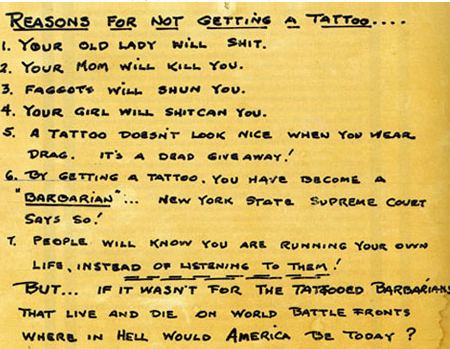 REASONS FOR NOT GETTING A TATTOO....
1. YOUR OLD LADY WILL SHIT.
2. YOUR MOM WILL KILL YOU.
3. FAGGOTS WILL SHUN YOU.
4. YOUR GIRL WILL SHITCAN YOU.
5. A TATTOO DOESN'T LOOK NICE WHEN YOU WEAR
DRAG. IT'S A DEAD GIVEAWAY!
6. BY GETTING A TATTOO, YOU HAVE BECOME A
"BARBARIAN"... NEW YORK STATE SUPREME COURT
SAYS SO!
7. PEOPLE WILL KNOW YOU ARE RUNNING YOUR OWN
LIFE, INSTEAD OF LISTENING TO THEM!
BUT... IF IT WASN'T FOR THE TATTOOED BARBARIANS
THAT LIVE AND DIE ON WORLD BATTLE FRONTS
WHERE IN HELL WOULD AMERICA BE TODAY?